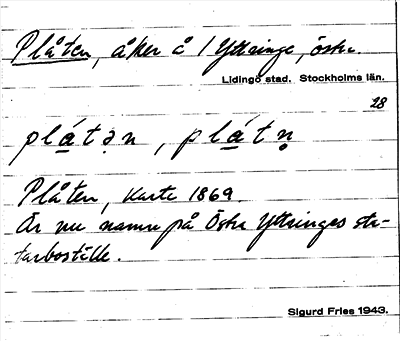 Plåten, åker å 1 Yttringe, östra.
Lidingö stad. Stockholms län.
28
plá̱tə̣n, plá̱tṇ
Plåten, Karta 1869.
Är nu namn på Östra Yttringes sta-
tarboställe.
Sigurd Fries 1943.